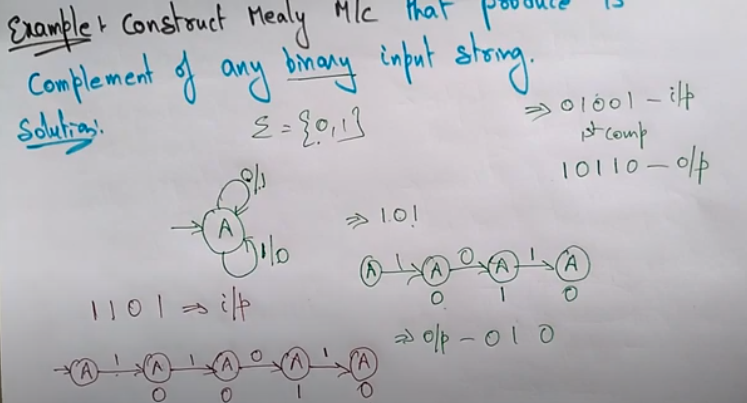 Example: Construct Mealy M/c that produce 1's
Complement of any binary input string.
Solution:
Σ = {0,1}
⇒ 01001 - i/p
1st comp
10110 - o/p
0/1
A
1/0
⇒ 101
A 1 A 0 A 1 A
0 1 0
⇒ o/p - 010
1101 ⇒ i/p
A 1 A 1 A 0 A 1 A
0 0 1 0